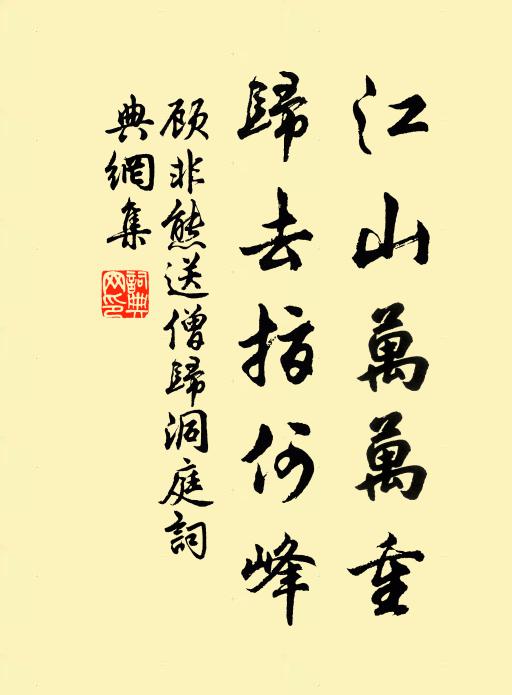 江山萬萬重
歸去指何峰
顾非熊送僧歸洞庭詞
典網集
詞典
网印